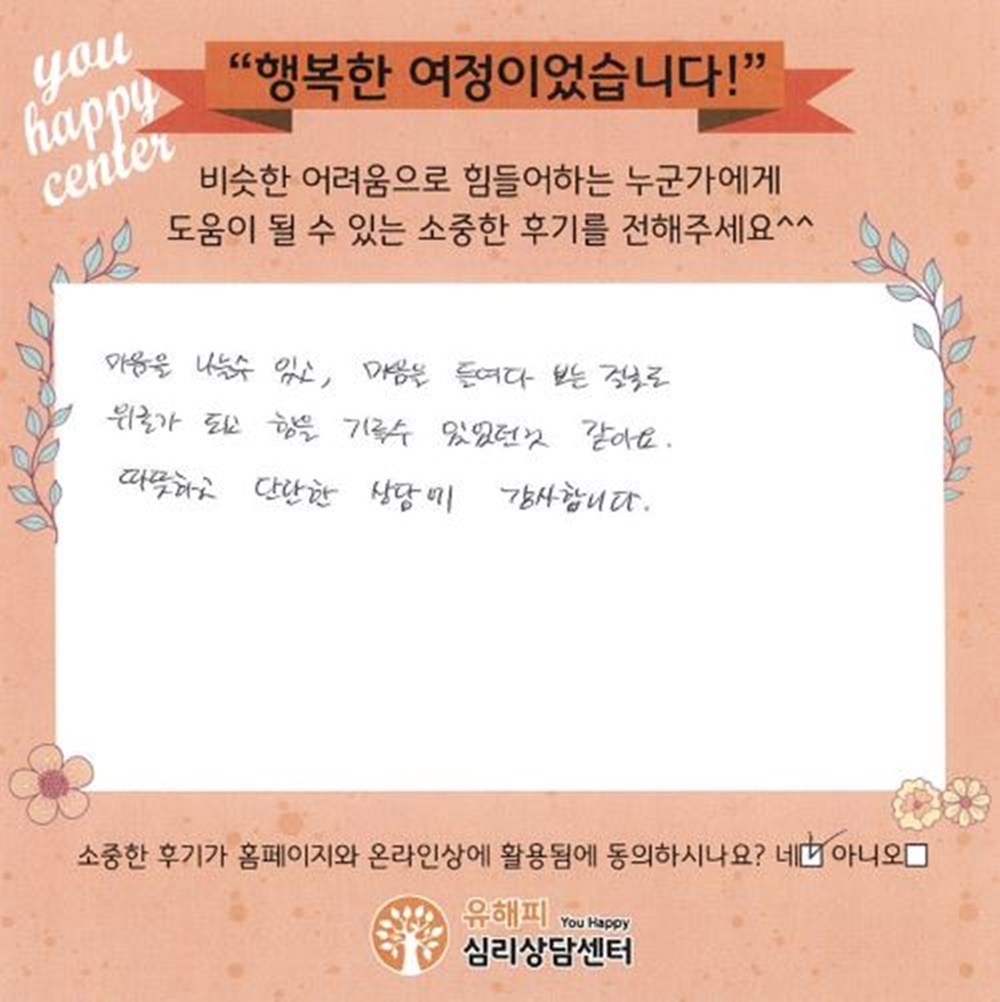 you
happy
center
“행복한 여정이었습니다!”
비슷한 어려움으로 힘들어하는 누군가에게
도움이 될 수 있는 소중한 후기를 전해주세요^^
마음을 나눌수 있고, 마음을 들여다 보는 질문로
위로가 되고 힘을 기를수 있었던것 같아요.
따뜻하고 단단한 상담에 감사합니다.
소중한 후기가 홈페이지와 온라인상에 활용됨에 동의하시나요? 네 아니오
유해피 You Happy
심리상담센터